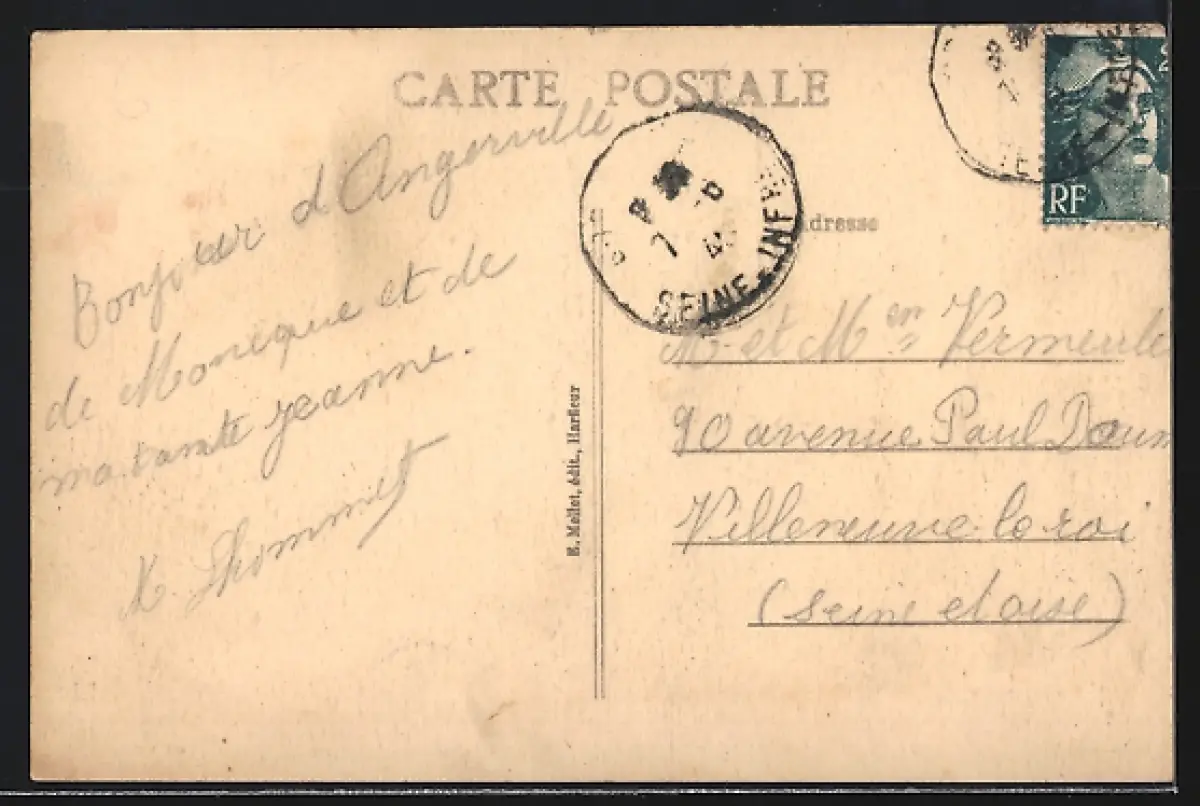 CARTE POSTALE
Bonjour d'Angerville
de Monique et de
ma tante jeanne.
M. Lhommet
E. Mellot, édit., Harfleur
SEINE-INF
7
RF
2
Adresse
M. et M en Vermeule
90 avenue Paul Doum
Villeneuve le roi
(seine et oise)